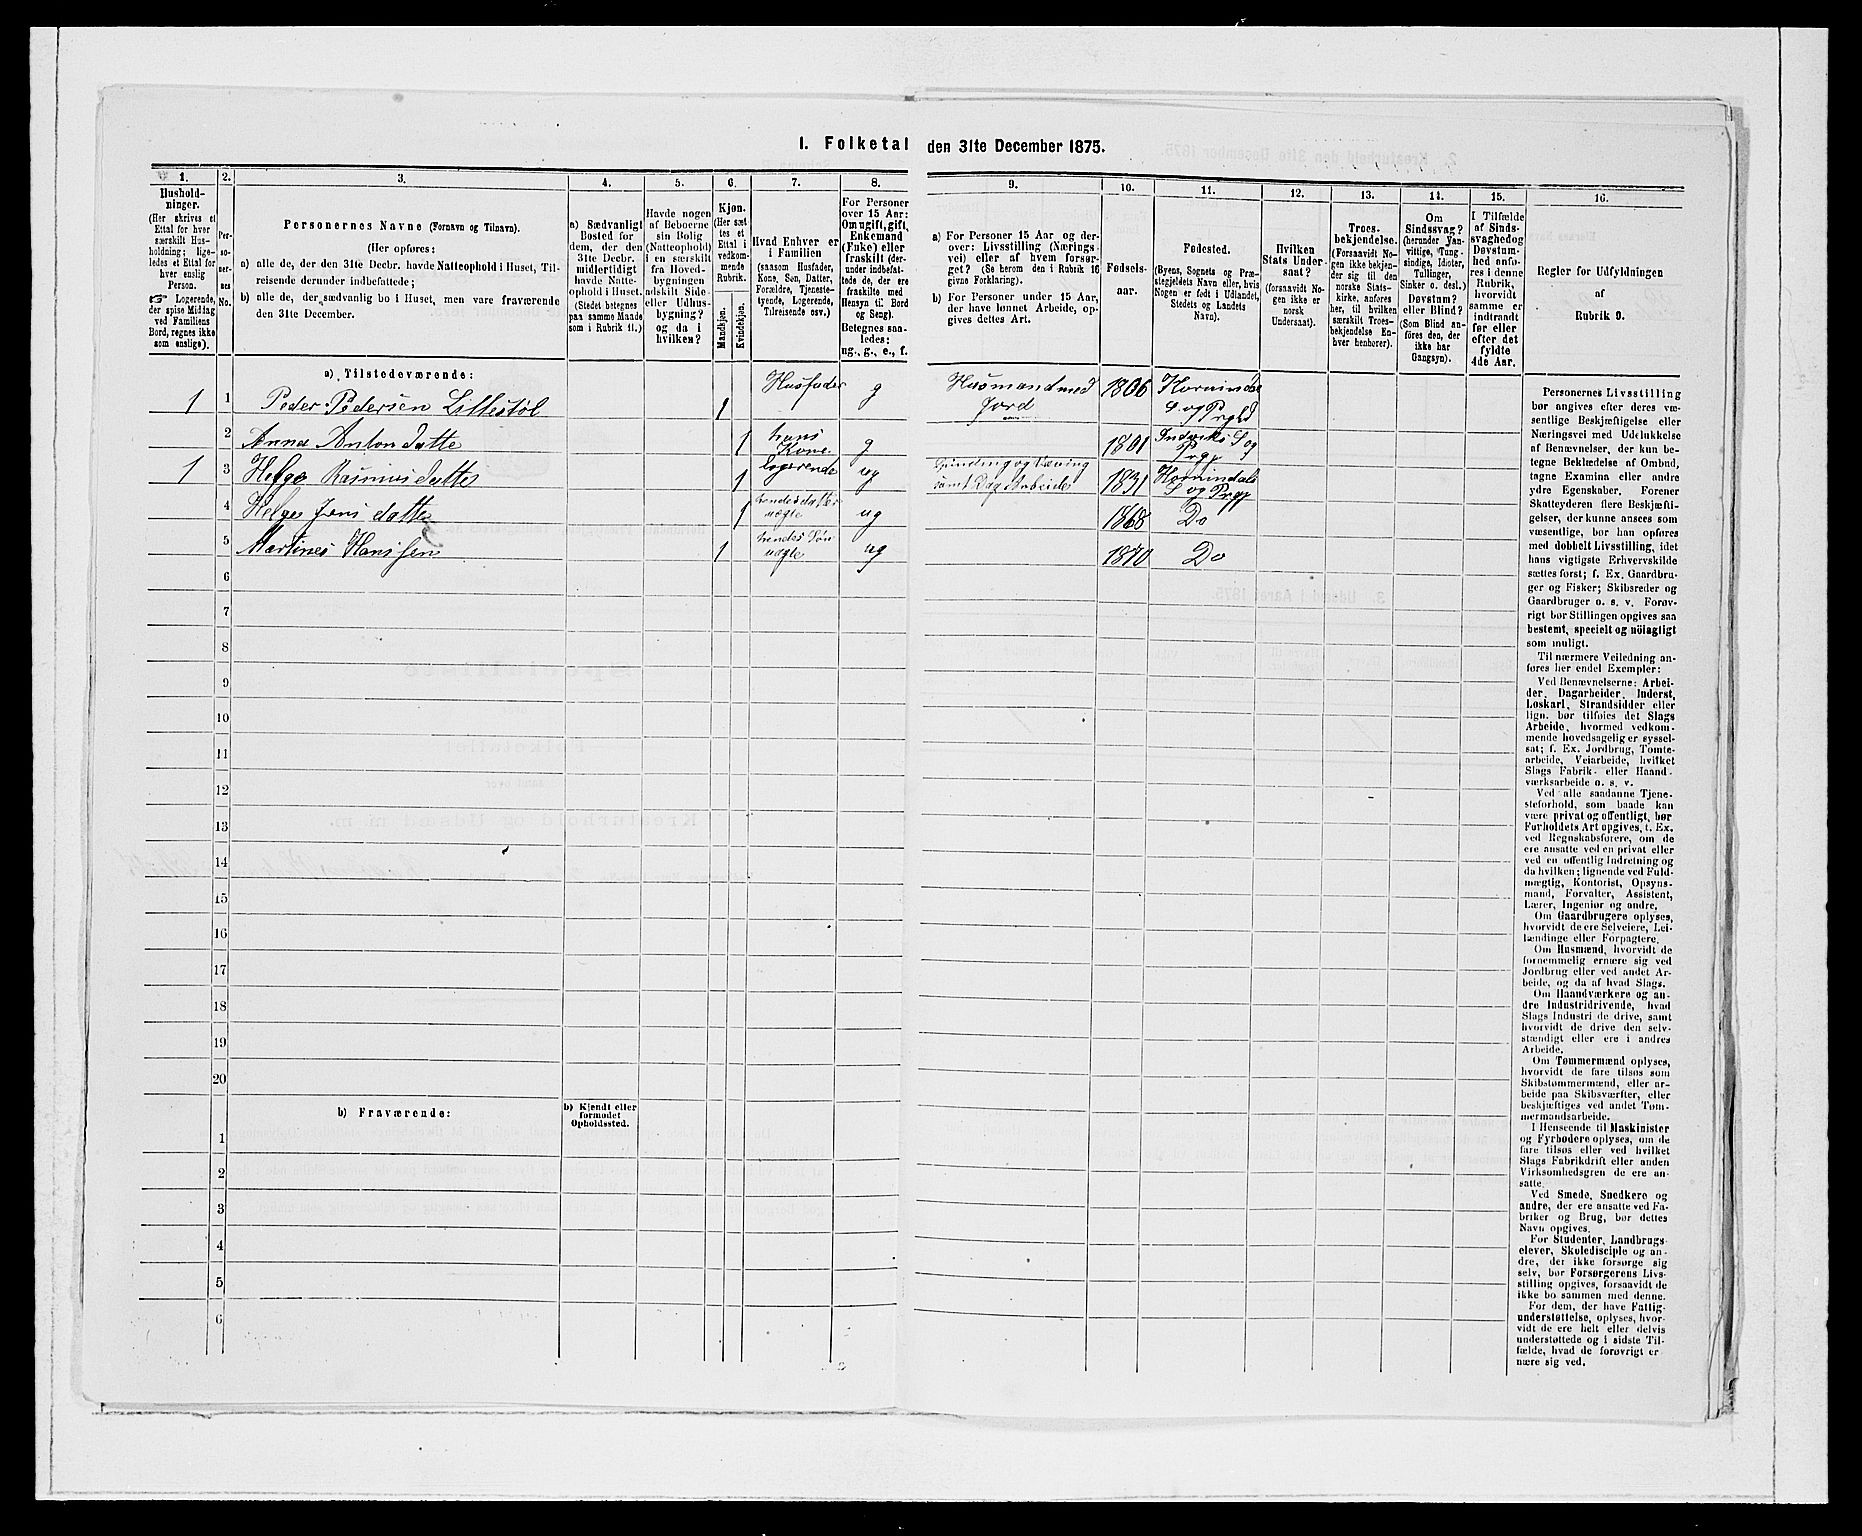 I. Folketal den 31te December 1875.
1.
Hushold-
ninger.
(Her skrives et
Ettal for hver
særskilt Hus-
holdning; lige-
ledes et Ettal for
hver enslig
Person.
☞ Logerende,
der spise Middag
ved Familiens
Bord, regnes ikke
som enslige).
2.
Per-
so-
ner-
nes
No.
3.
Personernes Navne (Fornavn og Tilnavn).
(Her opføres:
a) alle de, der den 31te Decbr. havde Natteophold i Huset, Til-
reisende derunder indbefattede;
b) alle de, der sædvanlig bo i Huset, men vare fraværende
den 31te December.
4.
a) Sædvanligt
Bosted for
dem, der den
31te Decbr.
midlertidigt
havde Natte-
ophold i Huset.
(Stedet betegnes
paa samme Maade
som i Rubrik 11.)
5.
Havde nogen
af Beboerne
sin Bolig
(Natteophold)
i en særskilt
fra Hoved-
bygningen
adskilt Side-
eller Udhus-
bygning?
og da i
hvilken?
6.
Kjøn.
(Her sæt-
tes et
Ettal i
vedkom-
mende
Rubrik.
Mandkjøn.
Kvindekjøn.
7.
Hvad Enhver er
i Familien
(saasom Husfader,
Kone, Søn, Datter,
Forældre, Tjeneste-
tyende, Logerende,
Tilreisende osv.)
8.
For Personer
over 15 Aar:
Om ugift, gift,
Enkemand
(Enke) eller
fraskilt (der-
under indbefat-
tede de, der ere
fraskilte med
Hensyn til Bord
og Seng).
Betegnes saa-
ledes:
ug., g., e., f.
9.
a) For Personer 15 Aar og der-
over: Livsstilling (Nærings-
vei) eller af hvem forsør-
get? (Se herom den i Rubrik 16
givne Forklaring).
b) For Personer under 15 Aar,
der have lønnet Arbeide, op-
gives dettes Art.
10.
Fødsels-
aar.
11.
Fødested.
(Byens, Sognets og Præ-
stegjeldets Navn eller, hvis
Nogen er født i Udlandet,
Stedets og Landets
Navn).
12.
Hvilken
Stats Under-
saat?
(forsaavidt No-
gen ikke er
norsk
Undersaat).
13.
Troes-
bekjendelse.
(Forsaavidt No-
gen ikke bekjen-
der sig til den
norske Stats-
kirke, anføres
her, til hvilken
særskilt Troes-
bekjendelse En-
hver henhører).
14.
Om
Sindssvag?
(herunder Van-
vittige, Tung-
sindige, Idioter,
Tullinger,
Sinker o. desl.)
Døvstum?
eller Blind?
(Som Blind an-
føres den, der
ikke har
Gangsyn).
15.
I Tilfælde
af Sinds-
svaghed og
Døvstum-
hed anfø-
res i denne
Rubrik,
hvorvidt
samme er
indtraadt
før eller
efter det
fyldte
4de Aar.
16.
Regler for Udfyldningen
af
Rubrik 9.
a) Tilstedeværende:
1 1 Peder Pedersen Lillestøl 1 Husfader g Husmand med Jord 1806 Hornindal S og Prgld
2 Anna Anton datte 1 hans Kone g 1801 Indviks S og Prgj
1 3 Helga Rasmus datte 1 logerende ug Spinding og Væving samt Dag Arbeide 1831 Hornindals S og Prgj
4 Helga Jens datte 1 hendes datter uægte ug 1868 Do
5 Martines Hanssen 1 hendes Søn uægte ug 1870 Do
6
7
8
9
10
11
12
13
14
15
16
17
18
19
20
b) Fraværende:
b) Kjendt eller
formodet
Opholdssted.
1
2
3
4
5
6
Personernes Livsstilling
bør angives efter deres væ-
sentlige Beskjæftigelse eller
Næringsvei med Udelukkelse
af Benævnelser, der kun be-
tegne Beklædelse af Ombud,
tagne Examina eller andre
ydre Egenskaber. Forener
Skatteyderen flere Beskjæfti-
gelser, der kunne ansees som
væsentlige, bør han opføres
med dobbelt Livsstilling, idet
hans vigtigste Erhvervskilde
sættes først; f. Ex. Gaardbru-
ger og Fisker; Skibsreder og
Gaardbruger o. s. v. Forøv-
rigt bør Stillingen opgives saa
bestemt, specielt og nöiagtigt
som muligt.
Til nærmere Veiledning an-
føres her endel Exempler:
Ved Benævnelserne: Arbei-
der, Dagarbeider, Inderst,
Løskarl, Strandsidder eller
lign. bør tilføies det Slags
Arbeide, hvormed vedkom-
mende hovedsagelig er syssel-
sat; f. Ex. Jordbrug, Tomte-
arbeide, Veiarbeide, hvilket
Slags Fabrik- eller Haand-
værksarbeide o. s. v.
Ved alle saadanne Tjene-
steforhold, som baade kan
være privat og offentligt, bør
Forholdets Art opgives, t. Ex.
ved Regnskabsførere, om de
ere ansatte ved en privat eller
ved en offentlig Indretning og
da hvilken; lignende ved Fuld-
mægtig, Kontorist, Opsyns-
mand, Forvalter, Assistent,
Lærer, Ingeniør og andre.
Om Gaardbrugere oplyses,
hvorvidt de ere Selveiere, Lei-
lændinge eller Forpagtere.
Om Husmænd, hvorvidt de
fornemmelig ernære sig ved
Jordbrug eller ved andet Ar-
beide, og da af hvad Slags.
Om Haandværkere og an-
dre Industridrivende, hvad
Slags Industri de drive, samt
hvorvidt de drive den selv-
stændigt eller ere i andres
Arbeide.
Om Tømmermænd oplyses,
hvorvidt de fare tilsøs som
Skibstømmermænd, eller ar-
beide paa Skibsværfter, eller
beskjæftiges ved andet Tøm-
mermandsarbeide.
I Henseende til Maskinister
og Fyrbødere oplyses, om de
fare tilsøs eller ved hvilket
Slags Fabrikdrift eller anden
Virksomhedsgren de ere an-
satte.
Ved Smede, Snedkere og
andre, der ere ansatte ved Fa-
briker og Brug, bør dettes
Navn opgives.
For Studenter, Landbrugs-
elever, Skoledisciple og an-
dre, der ikke forsørge sig
selv, bør Forsørgerens Livs-
stilling opgives, forsaavidt de
ikke bo sammen med denne.
For dem, der have Fattig-
understøttelse, oplyses, hvor-
vidt de ere helt eller delvis
understøttede og i sidste Til-
fælde, hvad de forøvrigt er-
nære sig ved.